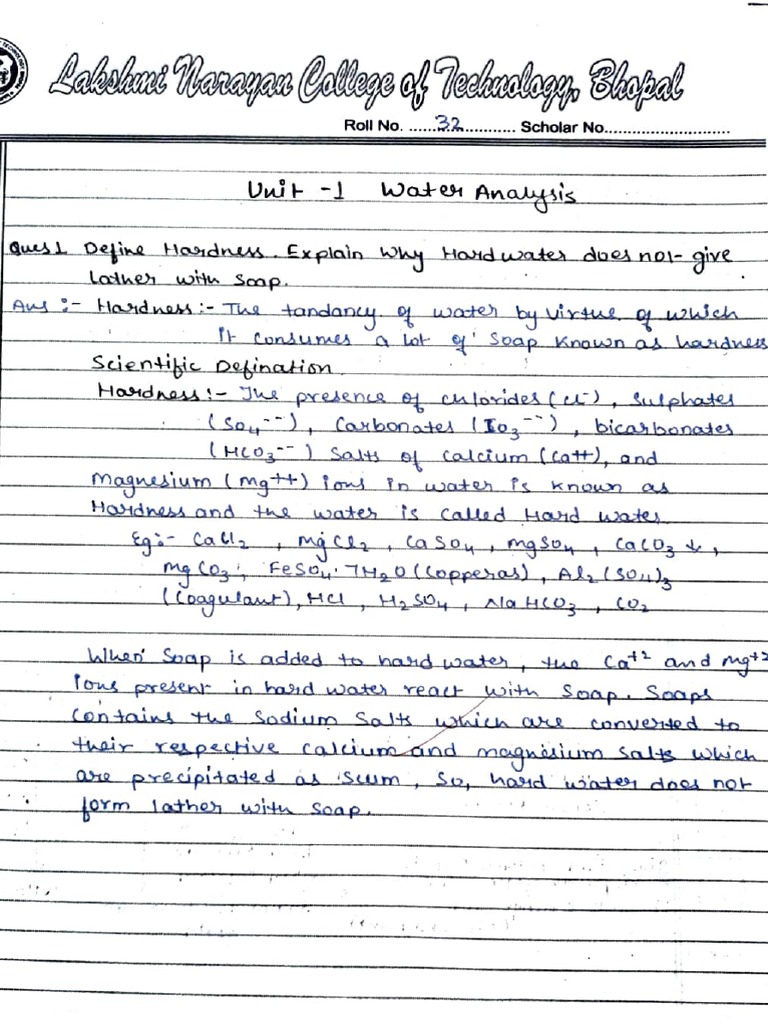 Lakshmi Narayan College of Technology, Bhopal
Roll No. ......32............ Scholar No............................
Unit -1 Water Analysis
Ques 1 Define Hardness. Explain why Hard water does not give
lather with soap.
Ans :- Hardness :- The tandancy of water by virtue of which
it consumes a lot of soap known as hardness
Scientific Defination
Hardness :- The presence of chlorides (Cl-), Sulphates
(SO4--), Carbonates (IO3--), bicarbonates
(HCO3--) Salts of Calcium (Ca++), and
Magnesium (Mg++) ions in water is known as
Hardness and the water is called Hard water
Eg:- CaCl2, MgCl2, CaSO4, MgSO4, CaCO3 ↓,
MgCO3, FeSO4.7H2O (Copperas), Al2(SO4)3
(Coagulant), HCl, H2SO4, NaHCO3, CO2
When Soap is added to hard water, the Ca+2 and Mg+2
ions present in hard water react with Soap. Soaps
contains the Sodium Salts which are converted to
their respective calcium and magnesium salts which
are precipitated as Scum, So, hard water does not
form lather with soap.